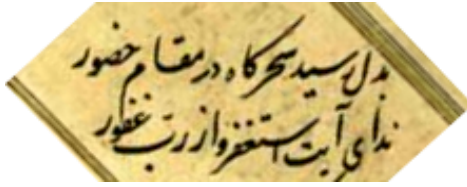 بدل رسید سحرگاه در مقام حضور
ندای آیت استغفروا ز رب غفور